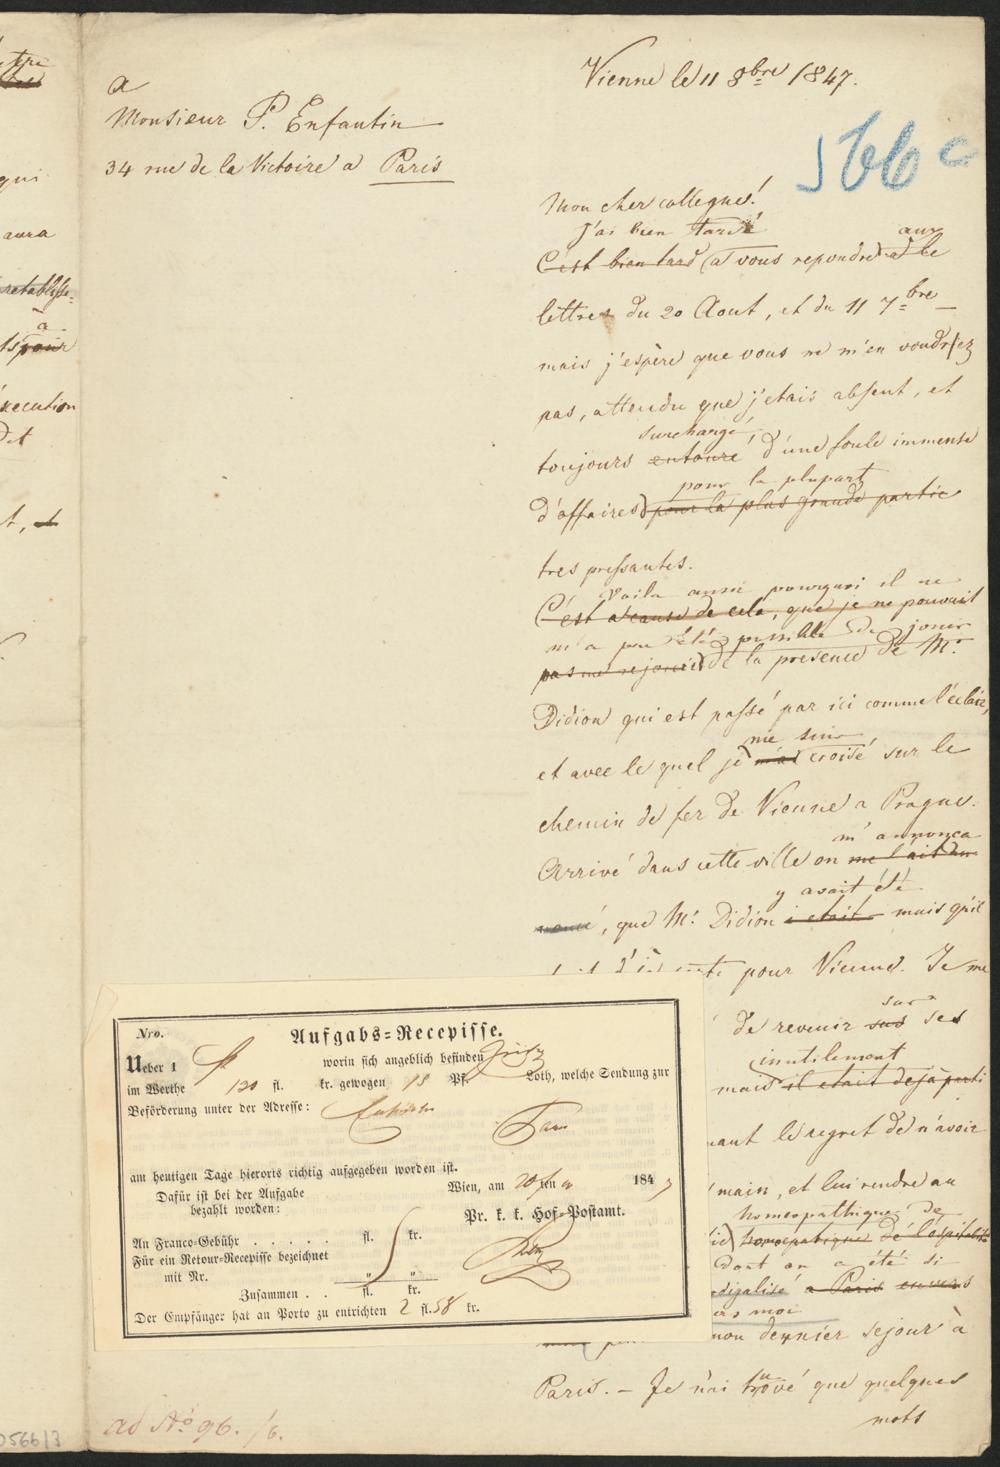 a
Monsieur P. Enfantin
34 rue de la Victoire a Paris
Vienne le 11 8bre 1847.
566c
Mon cher collegue!
J'ai bien tardé
C'est bien tard (a vous repondre) aux a le
lettres du 20 Aout, et du 11 7bre
mais j'espère que vous ne m'en voudriez
pas, attendu que j'etais absent, et
surchangé
toujours entouré d'une foule immense
pour la plupart
d'affaires) pour la plus grande partie
tres pressantes.
Voila aussi pourquoi il ne
C'est a cause de cela, que je ne pouvait
m'a pu été possible de jouir
pas me rejouir) de la presence de Mr.
Didion qui est passé par ici comme l'éclair,
me suis
et avec le quel je m'ai croisé sur le
chemin de fer de Vienne a Prague.
m'annonça
Arrivé dans cette ville on me l'ait an
y avait été
noncé, que Mr. Didion i etait mais qu'il
pour Vienne. Je me
sur
de revenir sus ses
inutilement
mais il etait dejà parti
le regret de n'avoir
main, et lui rendre au
homeopathique de
homoepatique de l'ospitalité
dont on a été si
a Paris envers
moi
mon dernier sejour à
Paris. – Je n'ai trouvé que quelques
mots
Nro.
Aufgabs=Recepisse.
Ueber 1 worin sich angeblich befinden
im Werthe 120 fl. kr. gewogen 13 Pf. Loth, welche Sendung zur
Beförderung unter der Adresse:
Paris
am heutigen Tage hierorts richtig aufgegeben worden ist.
Dafür ist bei der Aufgabe
bezahlt worden:
Wien, am 20 ten 1847
Pr. k. k. Hof=Postamt.
An Franco=Gebühr . . . . . fl. kr.
Für ein Retour=Recepisse bezeichnet
mit Nr. " "
Zusammen . . fl. kr.
Der Empfänger hat an Porto zu entrichten 2 fl. 58 kr.
ad No 96./6.
qui
aura
retablisse=
a
pour
execution
056613